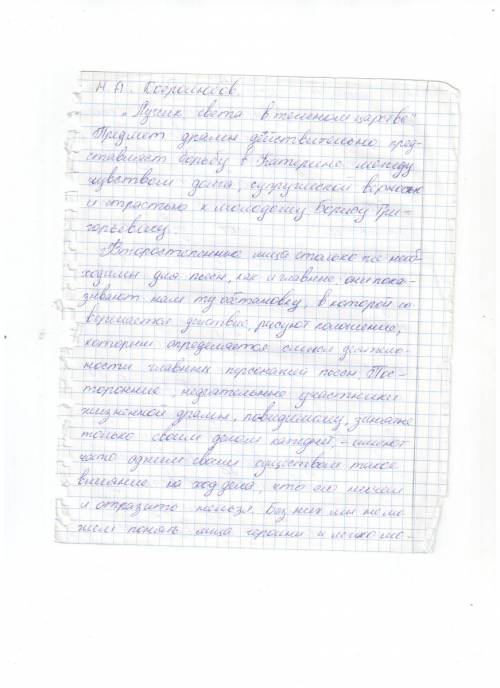 Н. А. Добролюбов.
„Лучик света в темном царстве"
Предмет драмы действительно пред-
ставляет борьбу в Катерине между
чувством долга, супружеской верности
и страстью к молодому Борису Гри-
горьевичу.
Второстепенные лица столько же необ-
ходимы для пьесы, как и главные, они пока-
зывают нам ту обстановку, в которой со
вершается действие, рисуют положение,
которым определяется смысл деятель-
ности главных персонажей пьесы. Пос-
торонние, недеятельные участники
жизненной драмы, повидимому, занятые
только своим делом каждый, - имеют
часто одним своим существом такое
влияние на ход дела, что его ничем
и отразить нельзя. Без них мы не мо
жем понять лица героини и легко мо-